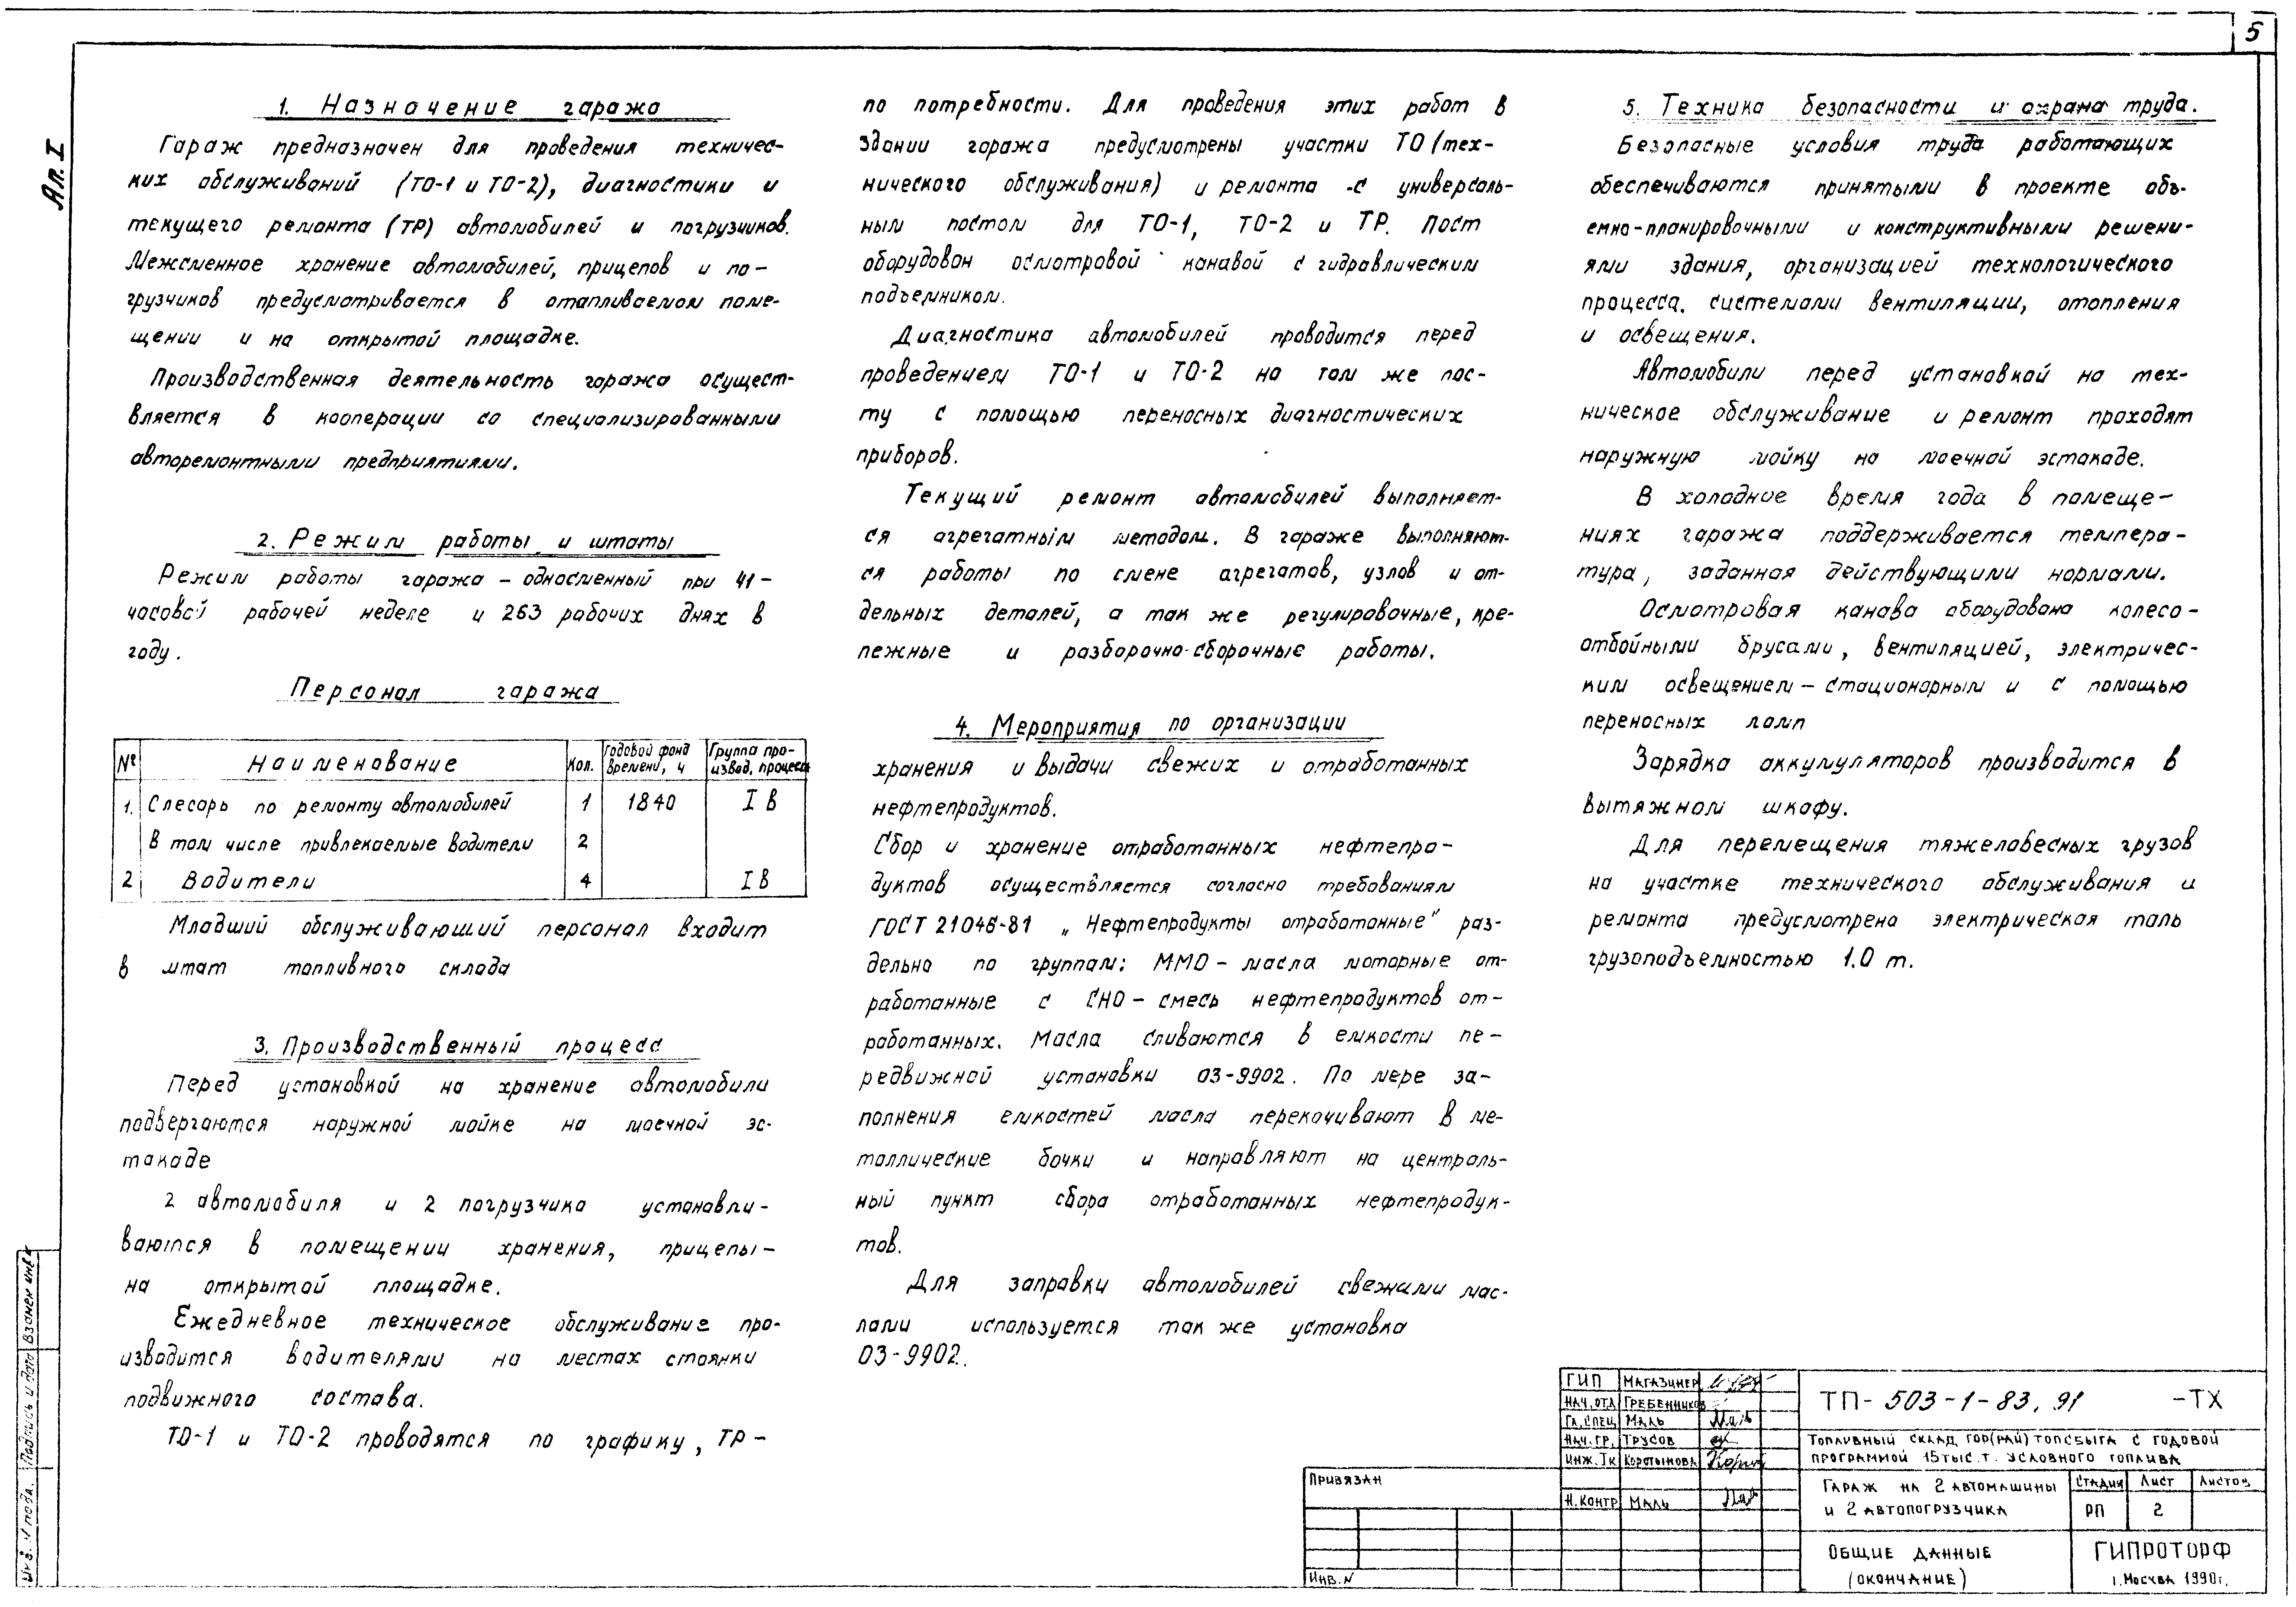 5
Ал. I
1. Назначение гаража
Гараж предназначен для проведения техничес-
ких обслуживаний (ТО-1 и ТО-2), диагностики и
текущего ремонта (ТР) автомобилей и погрузчиков.
Межсменное хранение автомобилей, прицепов и по-
грузчиков предусматривается в отапливаемом поме-
щении и на открытой площадке.
Производственная деятельность гаража осущест-
вляется в кооперации со специализированными
авторемонтными предприятиями.
2. Режим работы и штаты
Режим работы гаража – односменный при 41-
часовой рабочей неделе и 263 рабочих днях в
году.
Персонал гаража
№ Наименование Кол. Годовой фонд времени, ч Группа про-извод. процесса
1. Слесарь по ремонту автомобилей 1 1840 I В
В том числе привлекаемые водители 2
2 Водители 4 I В
Младший обслуживающий персонал входит
в штат топливного склада
3. Производственный процесс
Перед установкой на хранение автомобили
подвергаются наружной мойке на моечной эс-
такаде
2 автомобиля и 2 погрузчика устанавли-
ваются в помещении хранения, прицепы-
на открытой площадке.
Ежедневное техническое обслуживание про-
изводится водителями на местах стоянки
подвижного состава.
ТО-1 и ТО-2 проводятся по графику, ТР-
по потребности. Для проведения этих работ в
здании гаража предусмотрены участки ТО (тех-
нического обслуживания) и ремонта -с универсаль-
ным постом для ТО-1, ТО-2 и ТР. Пост
оборудован осмотровой канавой с гидравлическим
подъемником.
Диагностика автомобилей проводится перед
проведением ТО-1 и ТО-2 на том же пос-
ту с помощью переносных диагностических
приборов.
Текущий ремонт автомобилей выполняет-
ся агрегатным методом. В гараже выполняют-
ся работы по смене агрегатов, узлов и от-
дельных деталей, а так же регулировочные, кре-
пежные и разборочно-сборочные работы.
4. Мероприятия по организации
хранения и выдачи свежих и отработанных
нефтепродуктов.
Сбор и хранение отработанных нефтепро-
дуктов осуществляется согласно требованиям
ГОСТ 21046-81 „Нефтепродукты отработанные" раз-
дельно по группам: ММО – масла моторные от-
работанные с СНО – смесь нефтепродуктов от-
работанных. Масла сливаются в емкости пе-
редвижной установки 03-9902. По мере за-
полнения емкостей масла перекачивают в ме-
таллические бочки и направляют на централь-
ный пункт сбора отработанных нефтепродук-
тов.
Для заправки автомобилей свежими мас-
лами используется так же установка
03-9902.
5. Техника безопасности и охрана труда.
Безопасные условия труда работающих
обеспечиваются принятыми в проекте объ-
емно-планировочными и конструктивными решени-
ями здания, организацией технологического
процесса, системами вентиляции, отопления
и освещения.
Автомобили перед установкой на тех-
ническое обслуживание и ремонт проходят
наружную мойку на моечной эстакаде.
В холодное время года в помеще-
ниях гаража поддерживается темпера-
тура, заданная действующими нормами.
Осмотровая канава оборудована колесо-
отбойными брусами, вентиляцией, электричес-
ким освещением – стационарным и с помощью
переносных ламп
Зарядка аккумуляторов производится в
вытяжном шкафу.
Для перемещения тяжеловесных грузов
на участке технического обслуживания и
ремонта предусмотрена электрическая таль
грузоподъемностью 1.0 т.
ГИП Магазинер
Нач.отд Гребенников
Гл.спец Маль
Нач.гр. Трусов
Инж. Iк Коротынова
Н.контр Маль
Привязан
Инв. N
ТП-503-1-83.91 -ТХ
Топливный склад гор(рай) топсбыта с годовой
программой 15 тыс.т. условного топлива
Гараж на 2 автомашины
и 2 автопогрузчика
Стадия Лист Листов
РП 2
Общие данные
(окончание)
ГИПРОТОРФ
г.Москва 1990г.
Инв. N подл. Подпись и дата Взамен инв.